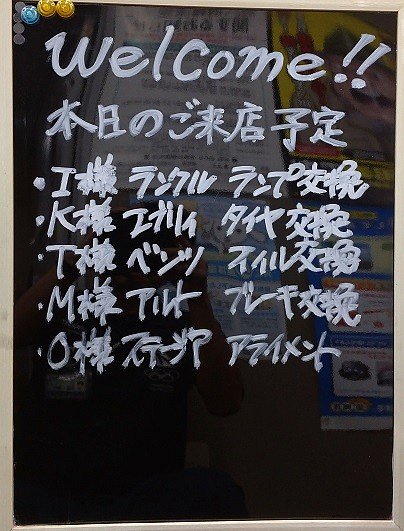 Welcome!!
本日のご来店予定
・I様 ランクル ランプ交換
・K様 エブリィ タイヤ交換
・T様 ベンツ オイル交換
・M様 アルト ブレーキ交換
・O様 ステージア アライメント